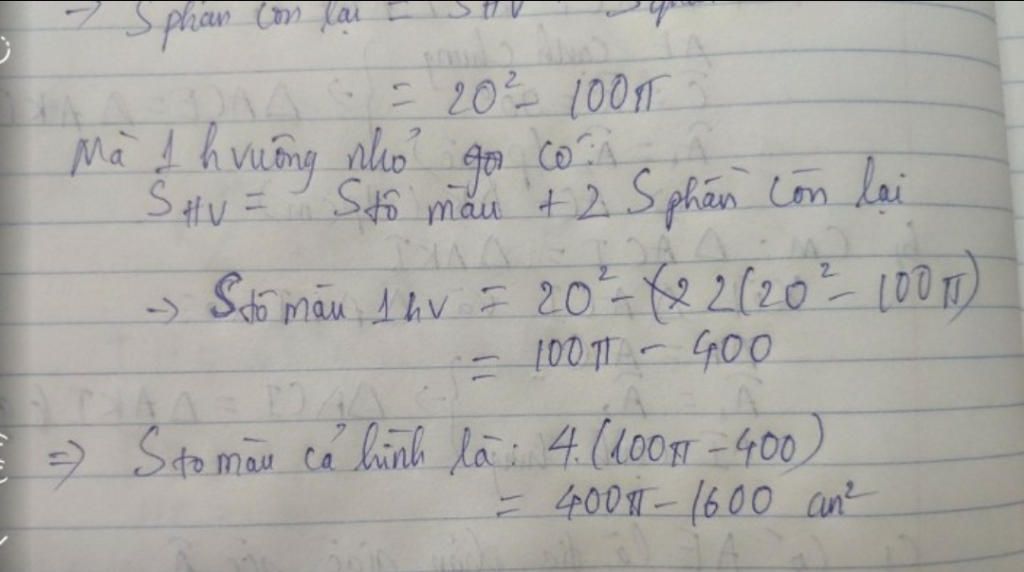 → S phần còn lại = SHV
= 20² - 100π
Mà 1 hvuông nhỏ có:
SHV = Stô màu + 2 S phần còn lại
→ Stô màu 1 hv = 20² - 2(20² - 100π)
= 100π - 400
⇒ Stô màu cả hình là: 4.(100π - 400)
= 400π - 1600 cm²